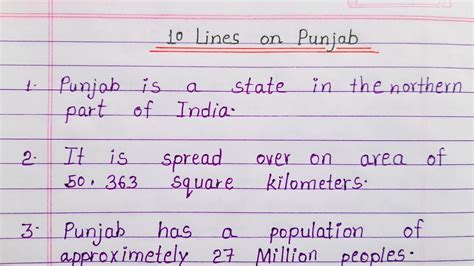 10 Lines on Punjab
1. Punjab is a state in the northern
part of India.
2. It is spread over on area of
50.363 square kilometers.
3. Punjab has a population of
approximetely 27 Million peoples.